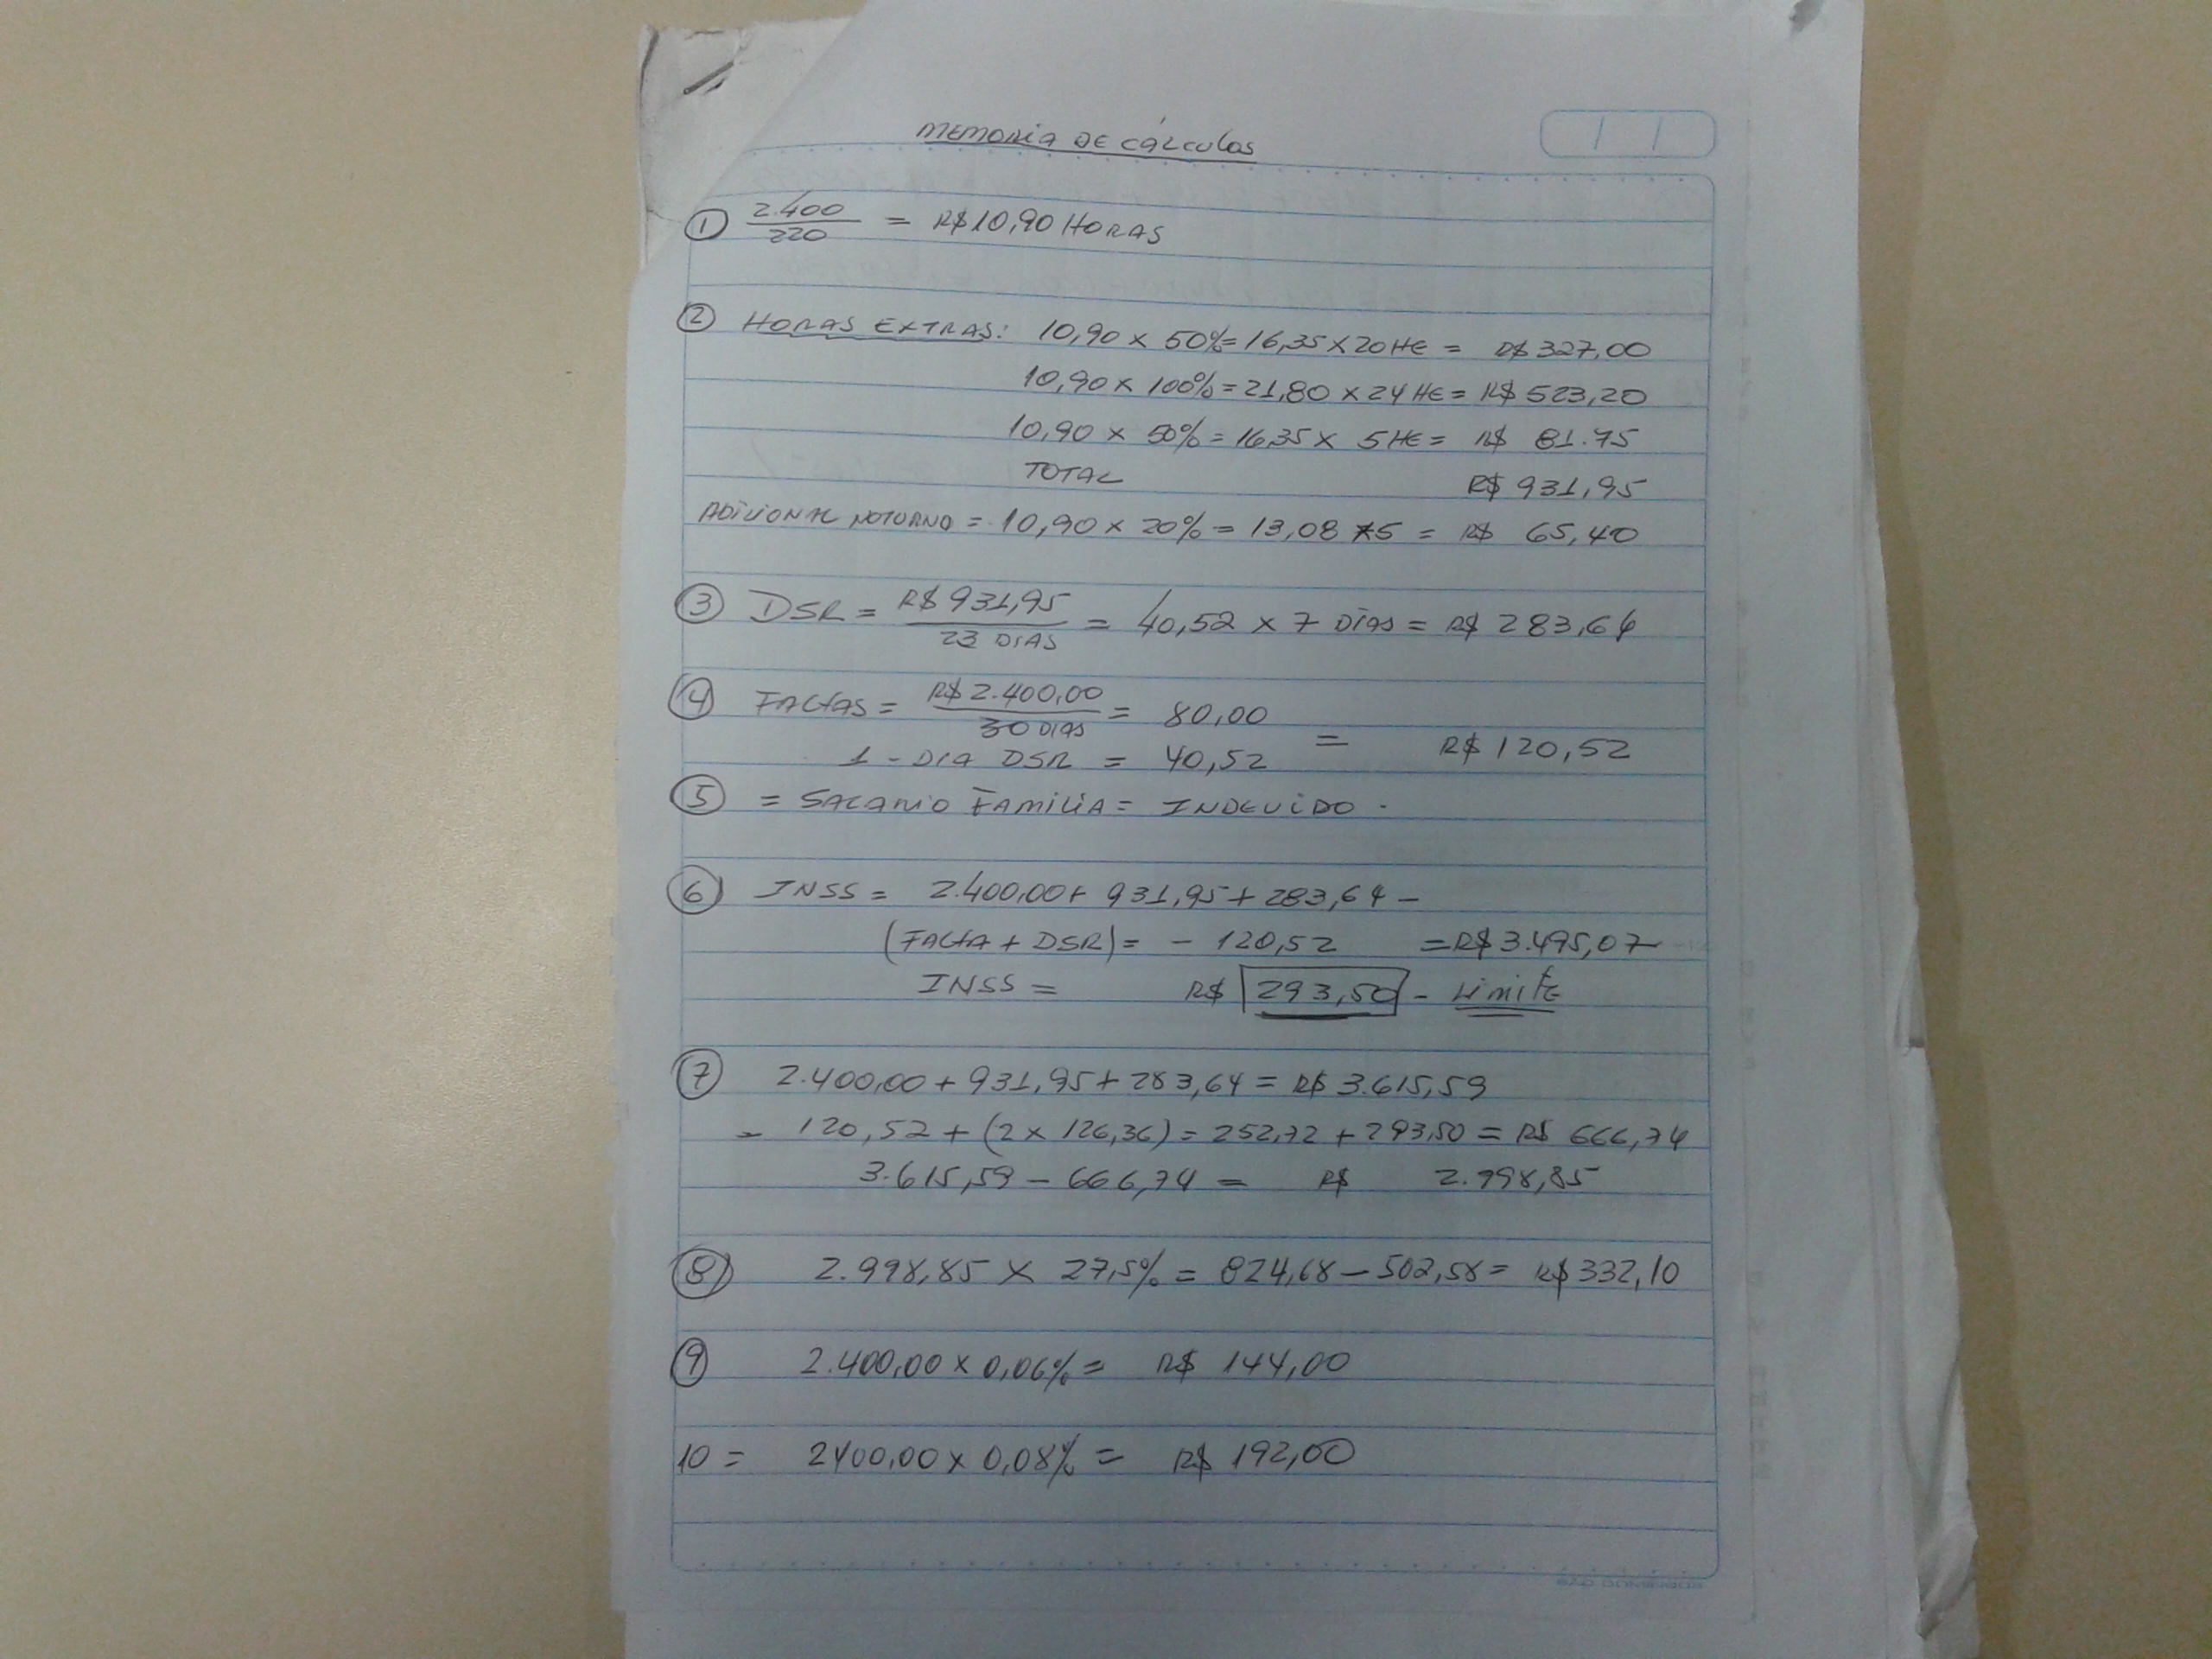 MEMORIA DE CÁLCULOS
1 2.400 = R$ 10,90 HORAS
220
2 HORAS EXTRAS: 10,90 x 50% = 16,35 x 20 HE = R$ 327,00
10,90 x 100% = 21,80 x 24 HE = R$ 523,20
10,90 x 50% = 16,35 x 5 HE = R$ 81.75
TOTAL R$ 931,95
ADICIONAL NOTURNO = 10,90 x 20% = 13,08 x 5 = R$ 65,40
3 DSR = R$ 931,95 = 40,52 x 7 DIAS = R$ 283,64
23 DIAS
4 FALTAS = R$ 2.400,00 = 80,00
30 DIAS
1 - DIA DSR = 40,52 = R$ 120,52
5 = SALARIO FAMILIA = INDEVIDO.
6 INSS = 2.400,00 + 931,95 + 283,64 -
(FALTA + DSR) = - 120,52 = R$ 3.495,07
INSS = R$ 293,50 - LIMITE
7 2.400,00 + 931,95 + 283,64 = R$ 3.615,59
= 120,52 + (2 x 126,36) = 252,72 + 293,50 = R$ 666,74
3.615,59 - 666,74 = R$ 2.998,85
8 2.998,85 x 27,5% = 824,68 - 502,58 = R$ 332,10
9 2.400,00 x 0,06% = R$ 144,00
10 = 2400,00 x 0,08% = R$ 192,00